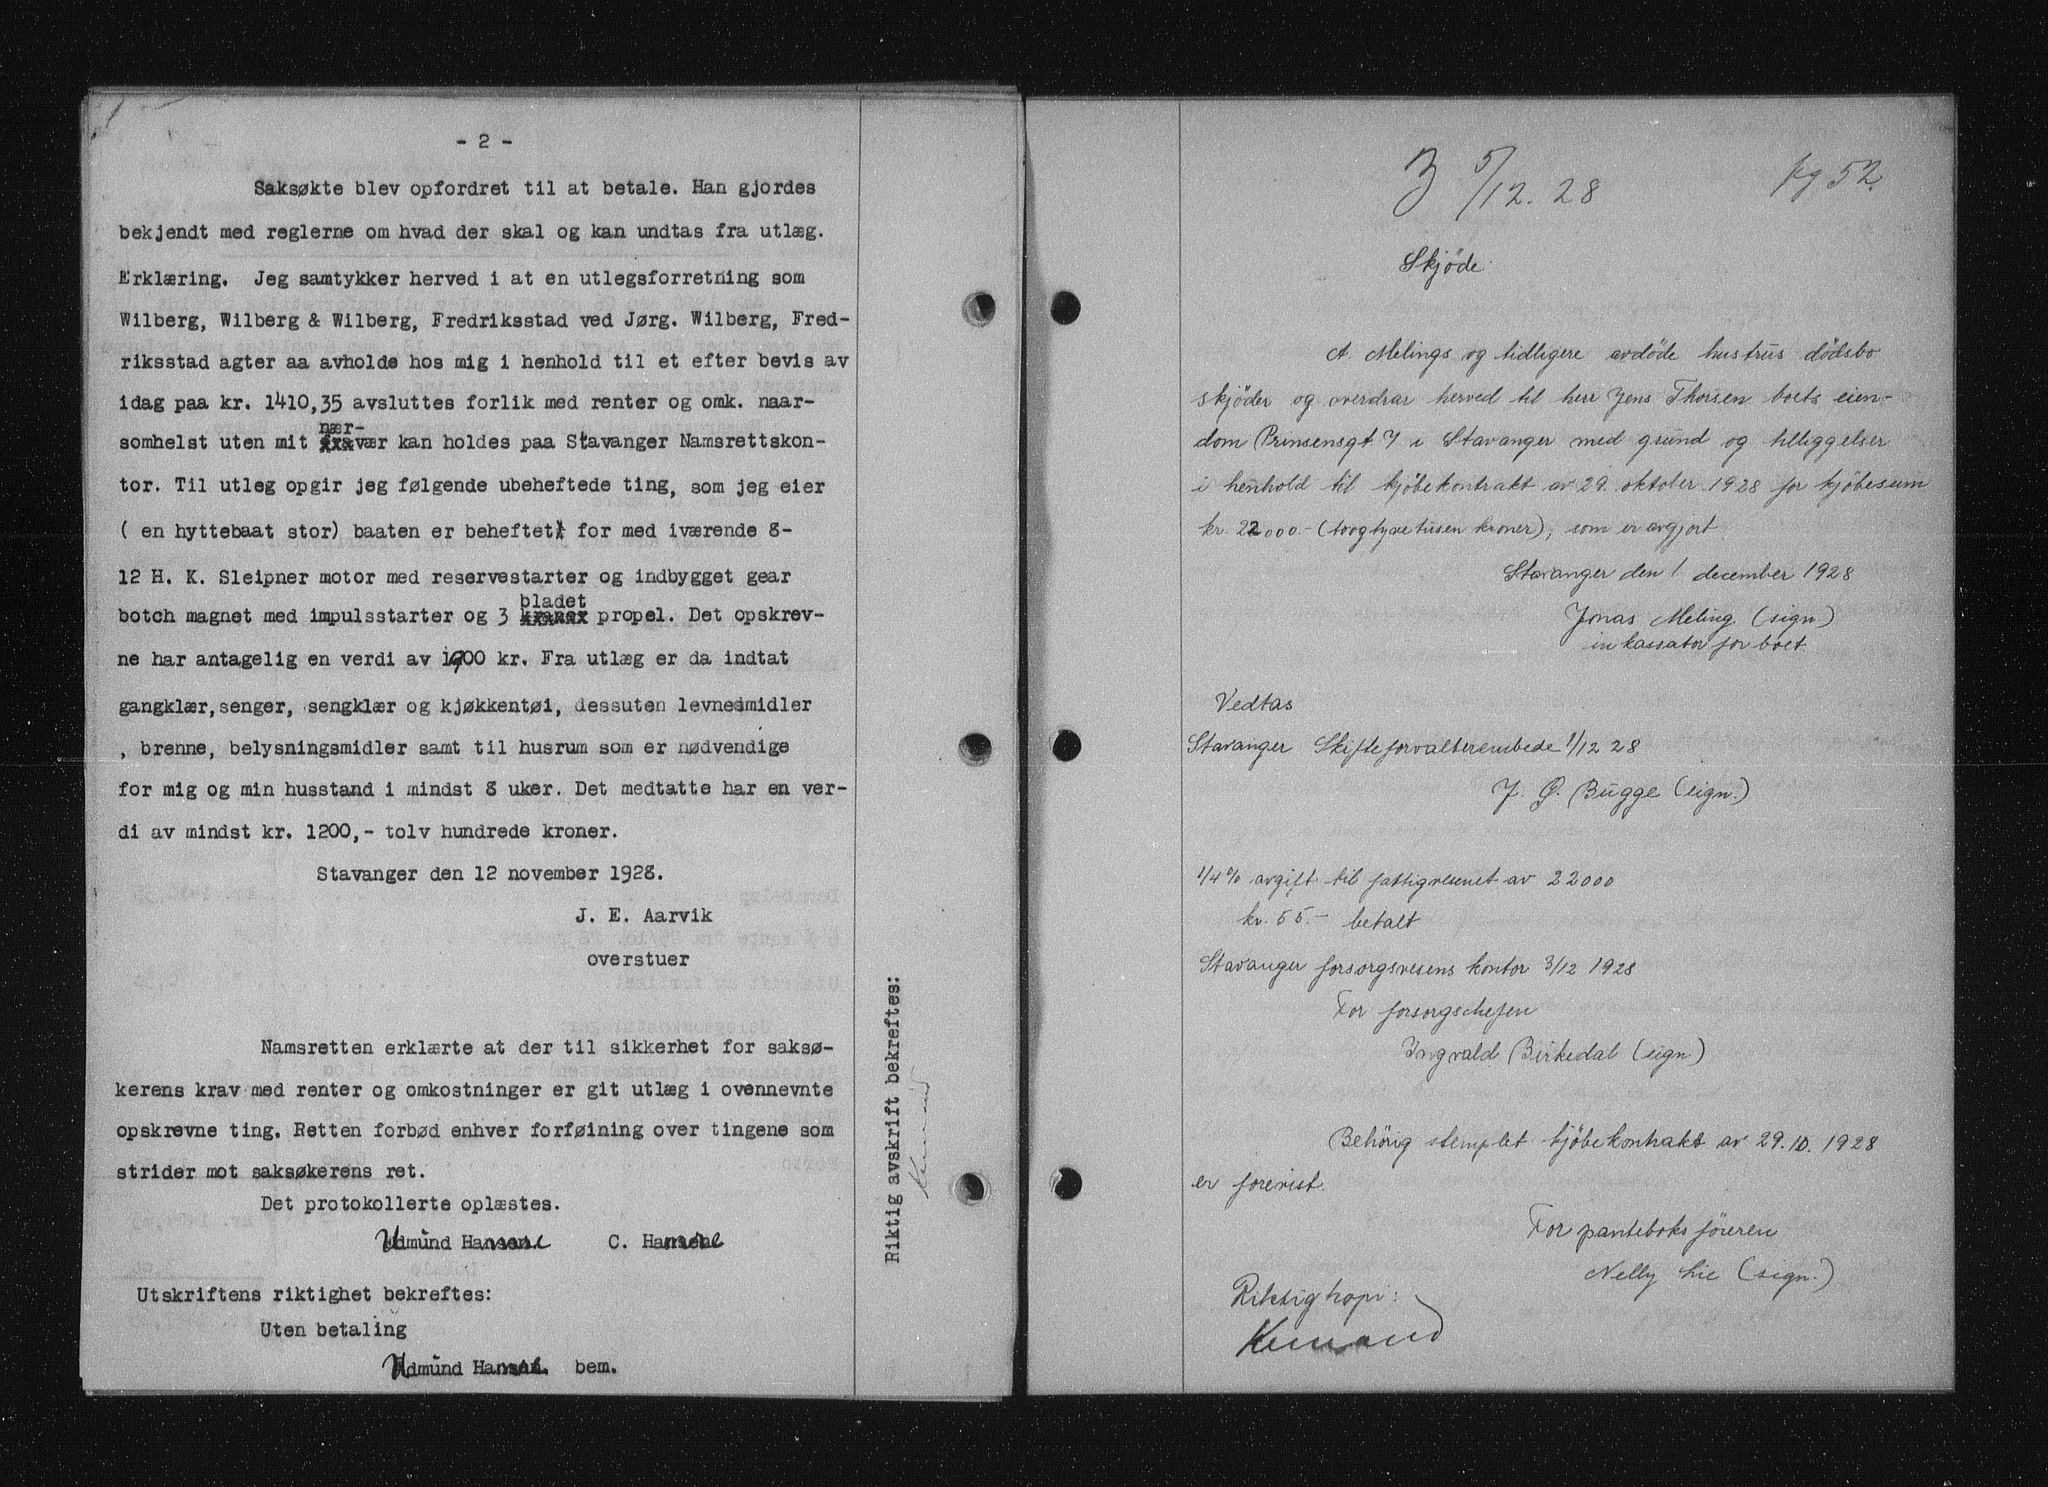 - 2 -
Saksøkte blev opfordret til at betale. Han gjordes
bekjendt med reglerne om hvad der skal og kan undtas fra utlæg.
Erklæring. Jeg samtykker herved i at en utlegsforretning som
Wilberg, Wilberg & Wilberg, Fredriksstad ved Jørg. Wilberg, Fred-
riksstad agter aa avholde hos mig i henhold til et efter bevis av
idag paa kr. 1410,35 avsluttes forlik med renter og omk. naar-
nær-
somhelst uten mit fravær kan holdes paa Stavanger Namsrettskon-
tor. Til utleg opgir jeg følgende ubeheftede ting, som jeg eier
( en hyttebaat stor) baaten er beheftet for med iværende 8-
12 H. K. Sleipner motor med reservestarter og indbygget gear
bladet
botch magnet med impulsstarter og 3 propel. Det opskrev-
ne har antagelig en verdi av 1900 kr. Fra utlæg er da indtat
gangklær, senger, sengklær og kjøkkentøi, dessuten levnedmidler
, brenne, belysningsmidler samt til husrum som er nødvendige
for mig og min husstand i mindst 8 uker. Det medtatte har en ver-
di av mindst kr. 1200,- tolv hundrede kroner.
Stavanger den 12 november 1928.
J. E. Aarvik
overstuer
Namsretten erklærte at der til sikkerhet for saksø-
kerens krav med renter og omkostninger er git utlæg i ovennevnte
opskrevne ting. Retten forbød enhver forføining over tingene som
strider mot saksøkerens ret.
Det protokollerte oplæstes.
Edmund Hansen. C. Hansen
Utskriftens riktighet bekreftes:
Uten betaling
Edmund Hansen. bem.
Riktig avskrift bekreftes:
5/12. 28
pg 52.
Skjöde
A. Melings og tidligere avdöde hustrus dödsbo
skjöder og overdrar herved til herr Jens Thorsen boets eien-
dom Prinsensgt. 7 i Stavanger med grund og tilliggelser
i henhold til kjöbekontrakt av 29. oktober 1928 for kjöbesum
kr. 22000.- (toogtyvetusen kroner), som er avgjort.
Stavanger den 1. december 1928
Jonas Meling (sign.)
inkassator for boet.
Vedtas
Stavanger Skifteforvalterembede 1/12 28
J. G. Bugge (sign.)
1/4 % avgift til fattigvesenet av 22000
kr. 55.- betalt
Stavanger forsorgsvesens kontor 3/12 1928
For forsorgschefen
Ingvald Birkedal (sign.)
Behörig stemplet kjöbekontrakt av 29.10.1928
er forevist.
For panteboksföreren
Nelly Lie (sign.)
Riktig kopi: